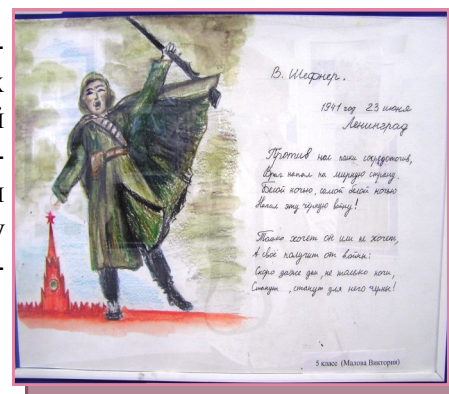 -
к
й
-
и
у
-
В. Шефнер.
1941 год 23 июня
Ленинград
Против нас полки сосредоточив,
Враг напал на мирную страну.
Белой ночью, самой белой ночью
Начал эту чёрную войну!
Только хочет он или не хочет,
А своё получит от войны:
Скоро даже дни, не только ночи,
Станут, станут для него черны!
5 класс (Малова Виктория)